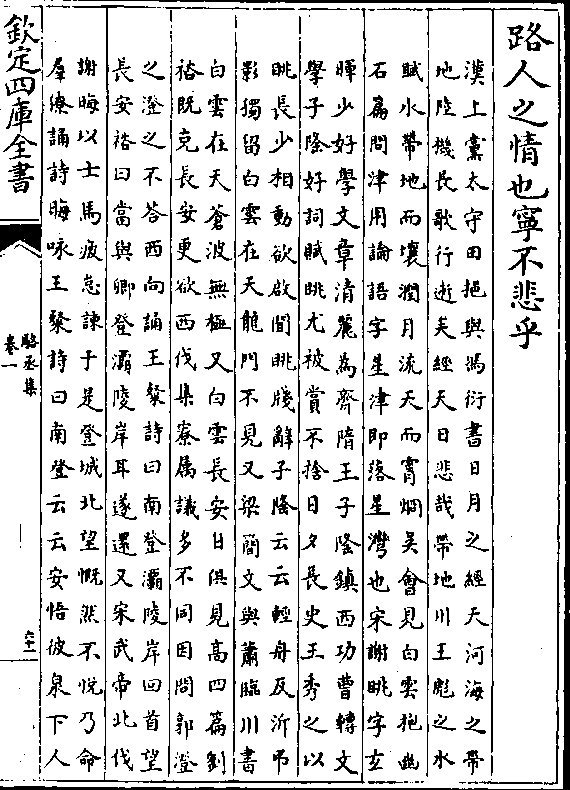 路人之情也寧不悲乎
漢上黨太守田邑與馮衍書日月之經天河海之帶
地陸機長歌行逝矣經天日悲哉帶地川王彪之水
賦水帶地而壤潤月流天而霄烱吳會見白雲抱幽
石篇問津用論語字星津即落星灣也宋謝眺字玄
暉少好學文章清麗為齊隋王子隆鎮西功曹轉文
學子隆好詞賦眺尤被賞不捨日夕長史王秀之以
眺長少相動欲啟聞眺牋辭子隆云云輕舟反泝弔
影獨留白雲在天龍門不見又梁簡文與蕭臨川書
白雲在天蒼波無極又白雲長安日俱見高四篇劉
裕既克長安更欲西伐集寮屬議多不同因問郭澄
之澄之不荅西向誦王粲詩曰南登灞陵岸回首望
長安裕曰當與卿登灞陵岸耳遂還又宋武帝北伐
謝晦以士馬疲怠諫于是登城北望慨然不悅乃命
羣僚誦詩晦咏王粲詩曰南登云云安悟彼泉下人
欽定四庫全書
駱丞集
卷一
六十一